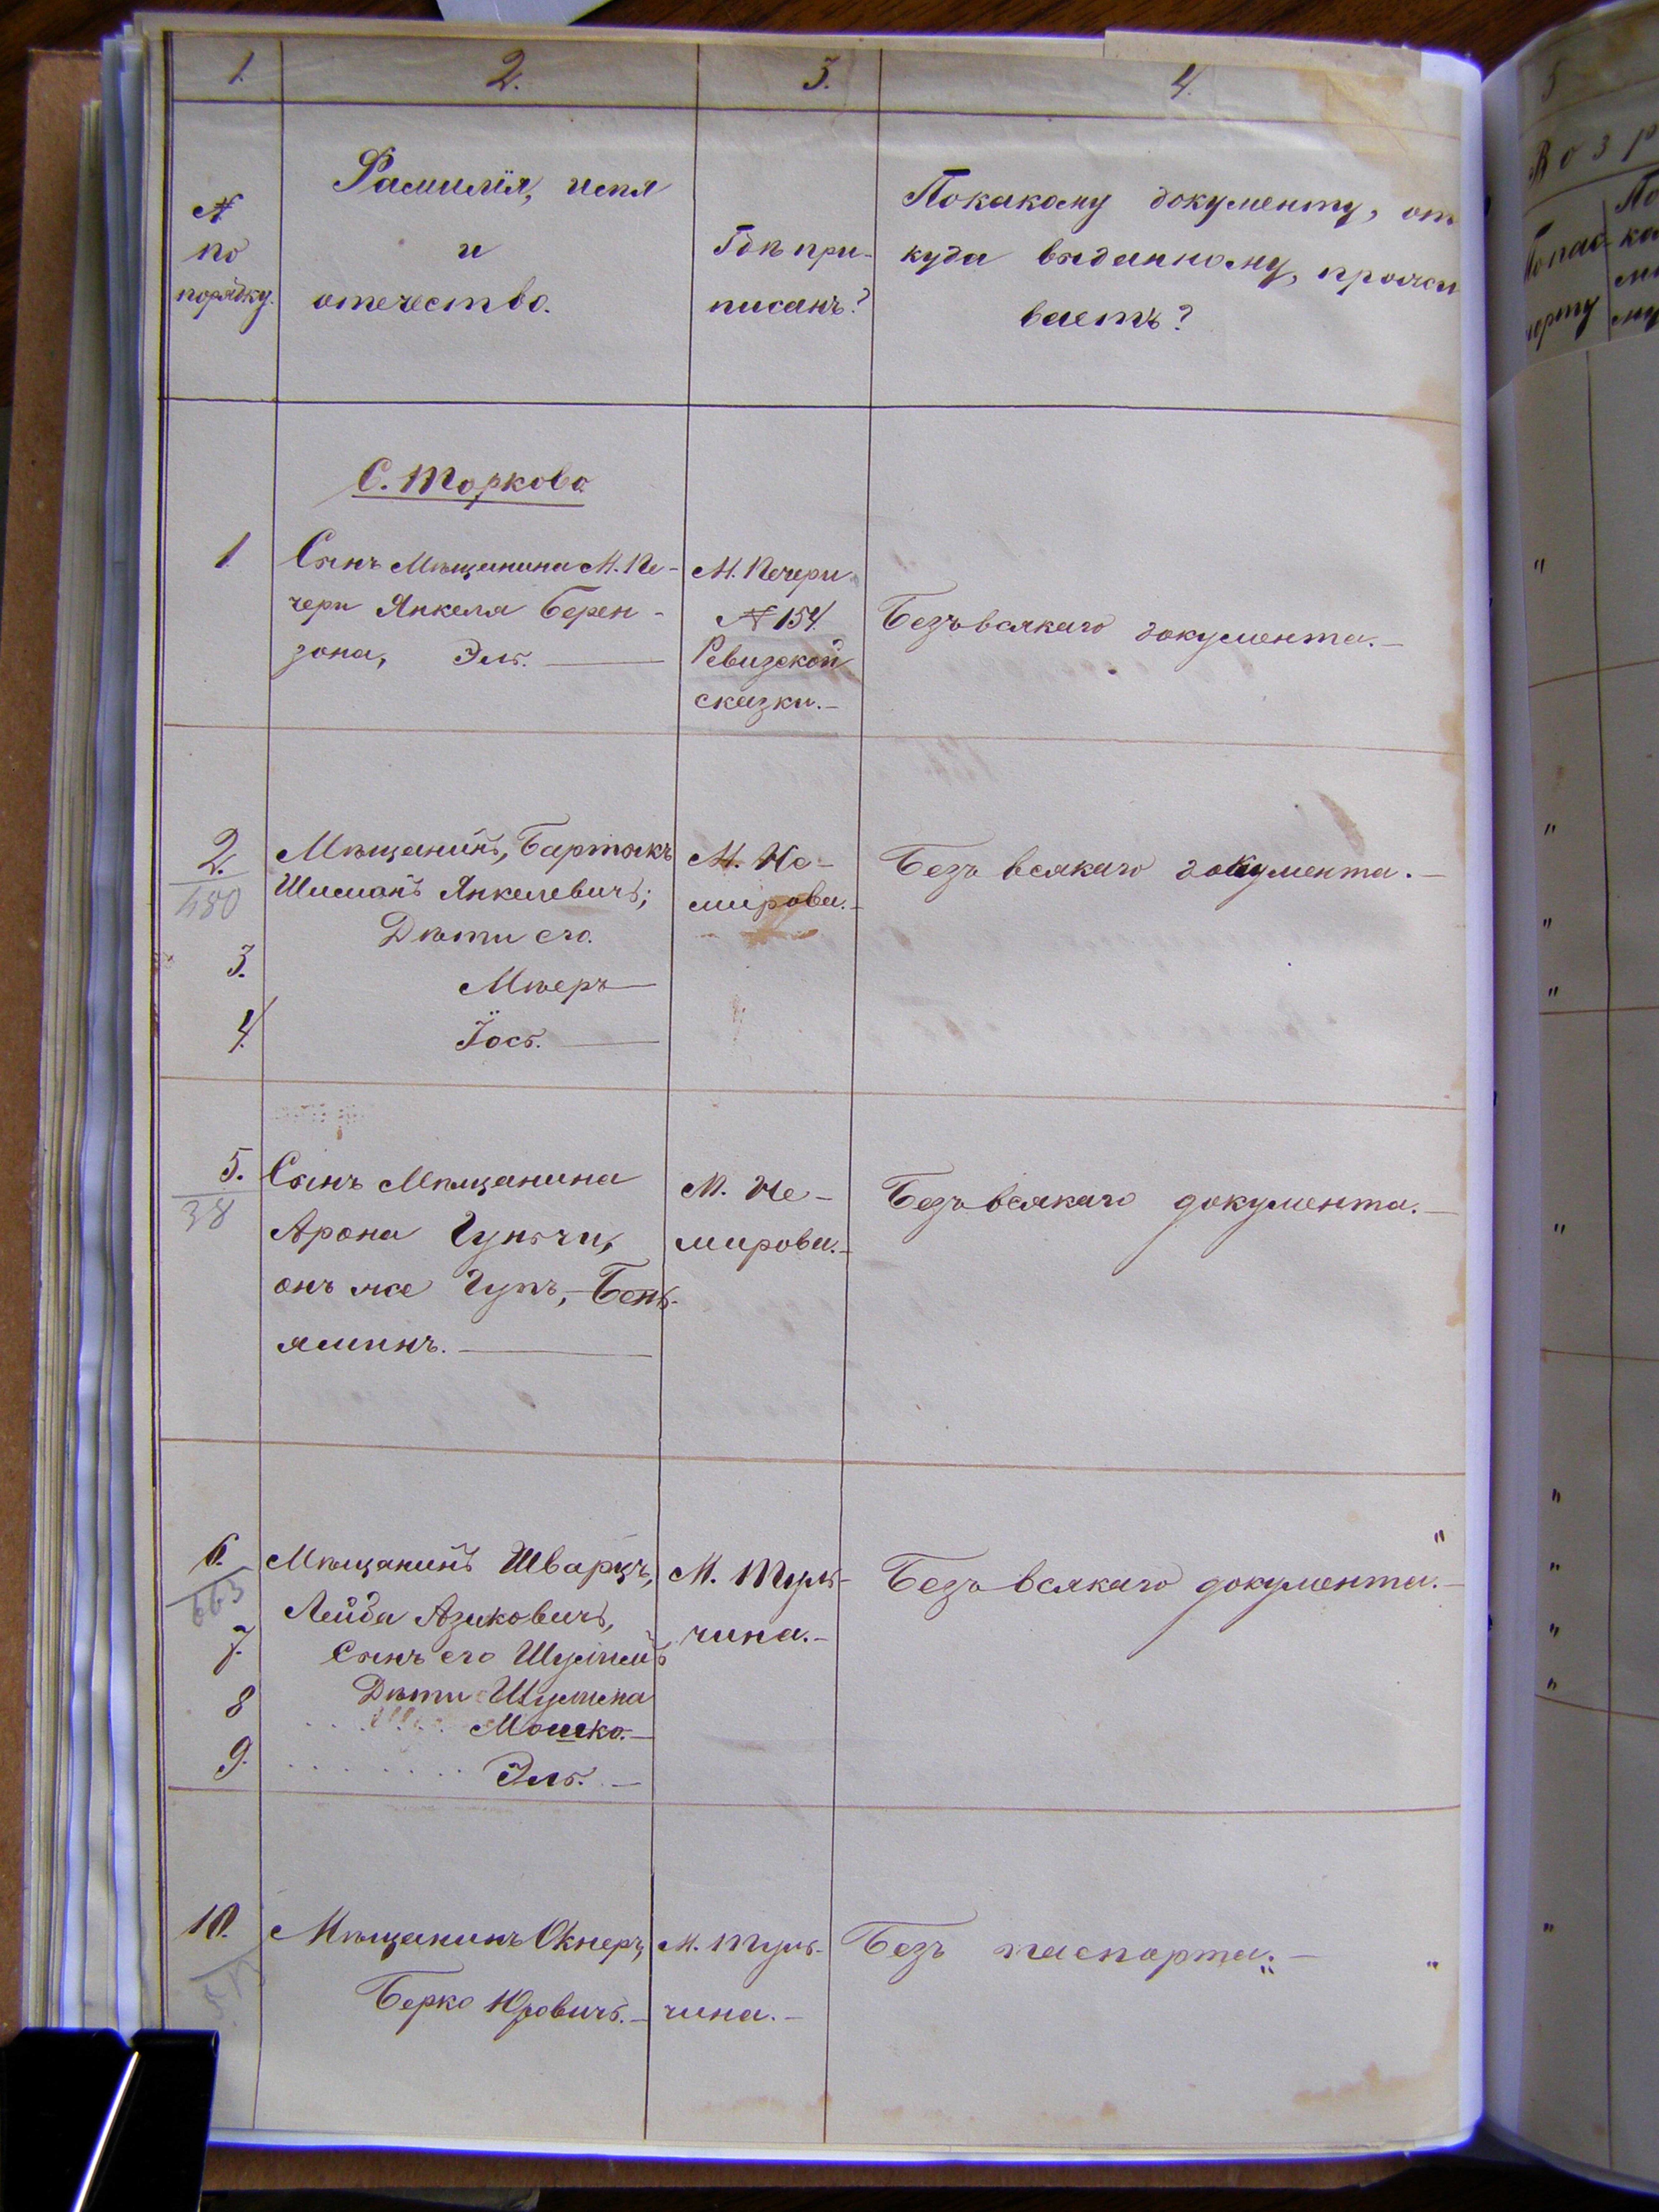 1. 2. 3. 4.
№ по порядку.
Фамилія, имя
и
отечество.
Гдѣ при-
писанъ?
Покакому документу, от
куда выданному, прожи
ваетъ?
С. Торкова
1 Сынъ Мѣщанина М. Пе-
чери Янкеля Берен-
зона, Эль.
М. Печери
№ 154
Ревизской
сказки.-
Безъ всякаго документа.-
2.
450
Мѣщанинъ, Бартыкъ
Шисманъ Янкелевичъ;
Дѣти его.
3. Мѣеръ
4. Іось.
М. Не-
мирова.-
Безъ всякаго документа.-
5.
38
Сынъ Мѣщанина
Арона
онъ же -Бень-
яминъ.
М. Не-
мирова.-
Безъ всякаго документа.-
6.
663
Мѣщанинъ Шварцъ,
Лейба Азиковичъ,
7. Сынъ его
8 Дѣти
Мошко.-
9. Эль. -
М. Туль-
чина.-
Безъ всякаго документа.-
10. Мѣщанинъ Окнеръ,
Берко -
М. Туль-
чина.-
Безъ паспорта.-
5
Возр
По пас
порту
По
ка